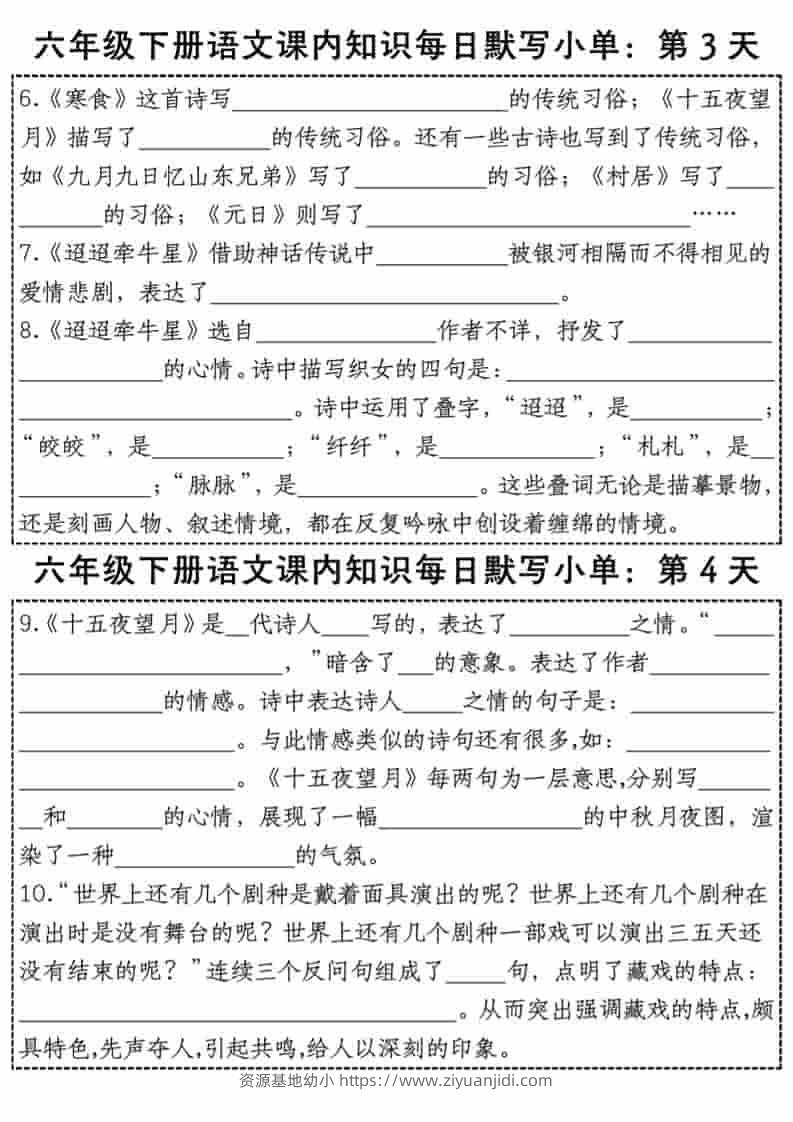 六年级下册语文课内知识每日默写小单：第 3 天
6.《寒食》这首诗写_______________________的传统习俗；《十五夜望
月》描写了___________的传统习俗。还有一些古诗也写到了传统习俗，
如《九月九日忆山东兄弟》写了___________的习俗；《村居》写了____
_______的习俗；《元日》则写了___________________________……
7.《迢迢牵牛星》借助神话传说中___________被银河相隔而不得相见的
爱情悲剧，表达了_____________________________。
8.《迢迢牵牛星》选自_______________作者不详，抒发了____________
____________的心情。诗中描写织女的四句是：______________________
_______________________。诗中运用了叠字，“迢迢”，是___________；
“皎皎”，是___________；“纤纤”，是_____________；“札札”，是__
___________；“脉脉”，是_______________。这些叠词无论是描摹景物，
还是刻画人物、叙述情境，都在反复吟咏中创设着缠绵的情境。
六年级下册语文课内知识每日默写小单：第 4 天
9.《十五夜望月》是__代诗人____写的，表达了__________之情。“_____
______________________，”暗含了___的意象。表达了作者__________
____________的情感。诗中表达诗人_____之情的句子是：____________
__________________。与此情感类似的诗句还有很多,如：____________
__________________。《十五夜望月》每两句为一层意思,分别写______
__和________的心情，展现了一幅_________________的中秋月夜图，渲
染了一种_______________的气氛。
10.“世界上还有几个剧种是戴着面具演出的呢？世界上还有几个剧种在
演出时是没有舞台的呢？世界上还有几个剧种一部戏可以演出三五天还
没有结束的呢？”连续三个反问句组成了_____句，点明了藏戏的特点：
____________________________________。从而突出强调藏戏的特点,颇
具特色,先声夺人,引起共鸣,给人以深刻的印象。
资源基地幼小 https://www.ziyuanjidi.com